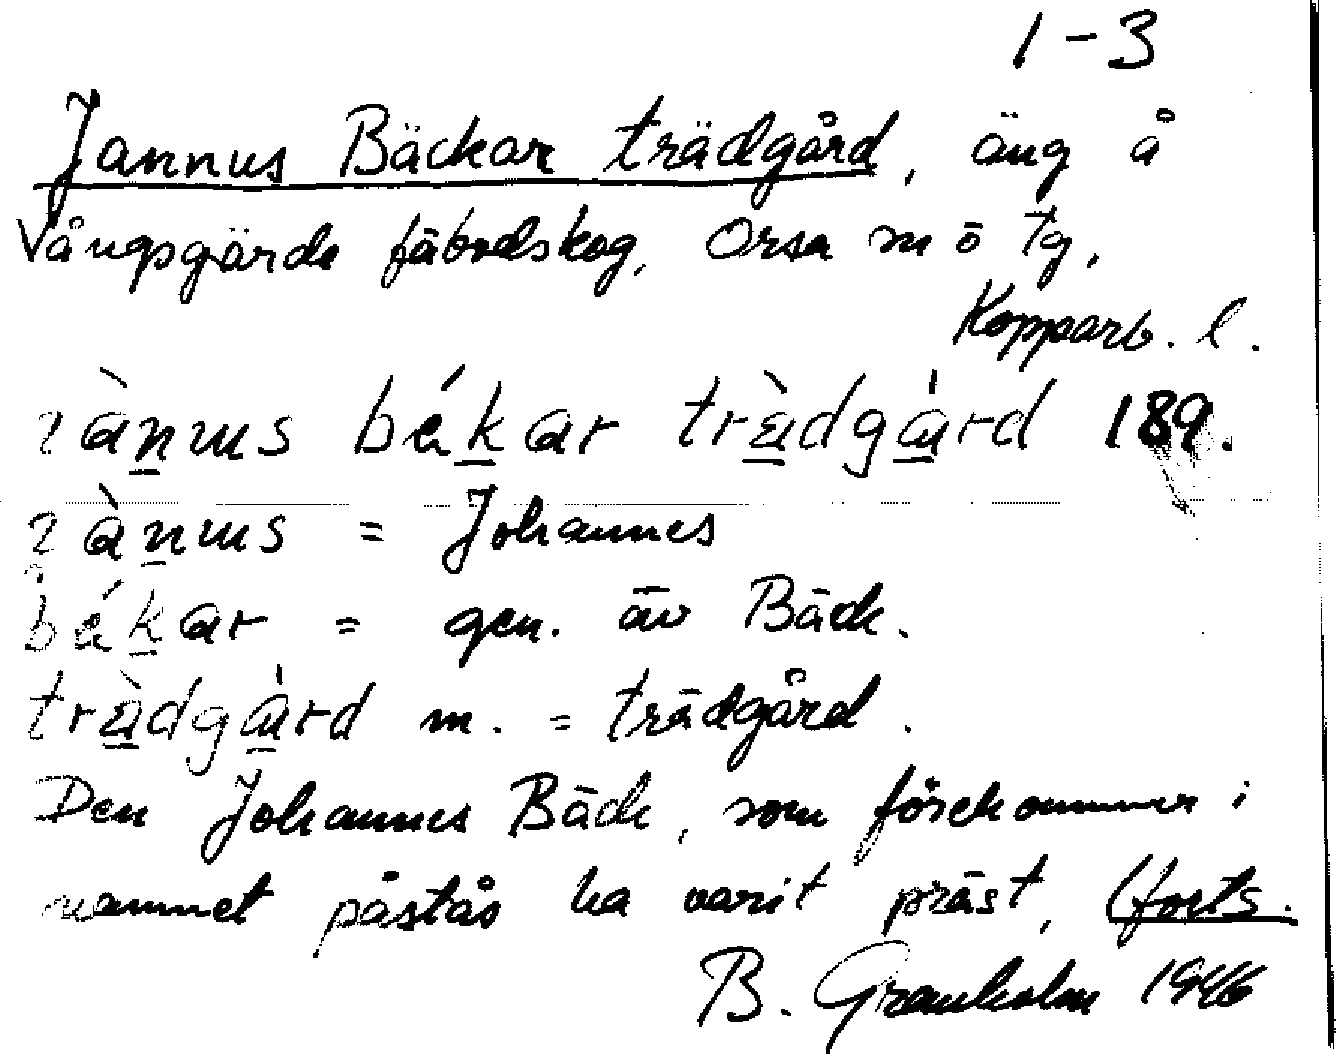 1-3
Jannus Bäckar trädgård, äng å
Vångsgärde fäbodskog, Orsa sn ö tg,
Kopparb. l.
békar trädgård 189.
= Johannes
békar = gen. av Bäck.
trädgård m. = trädgård.
Den Johannes Bäck, som förekommer i
namnet påstås ha varit präst, (forts.
B. Granholm 1946